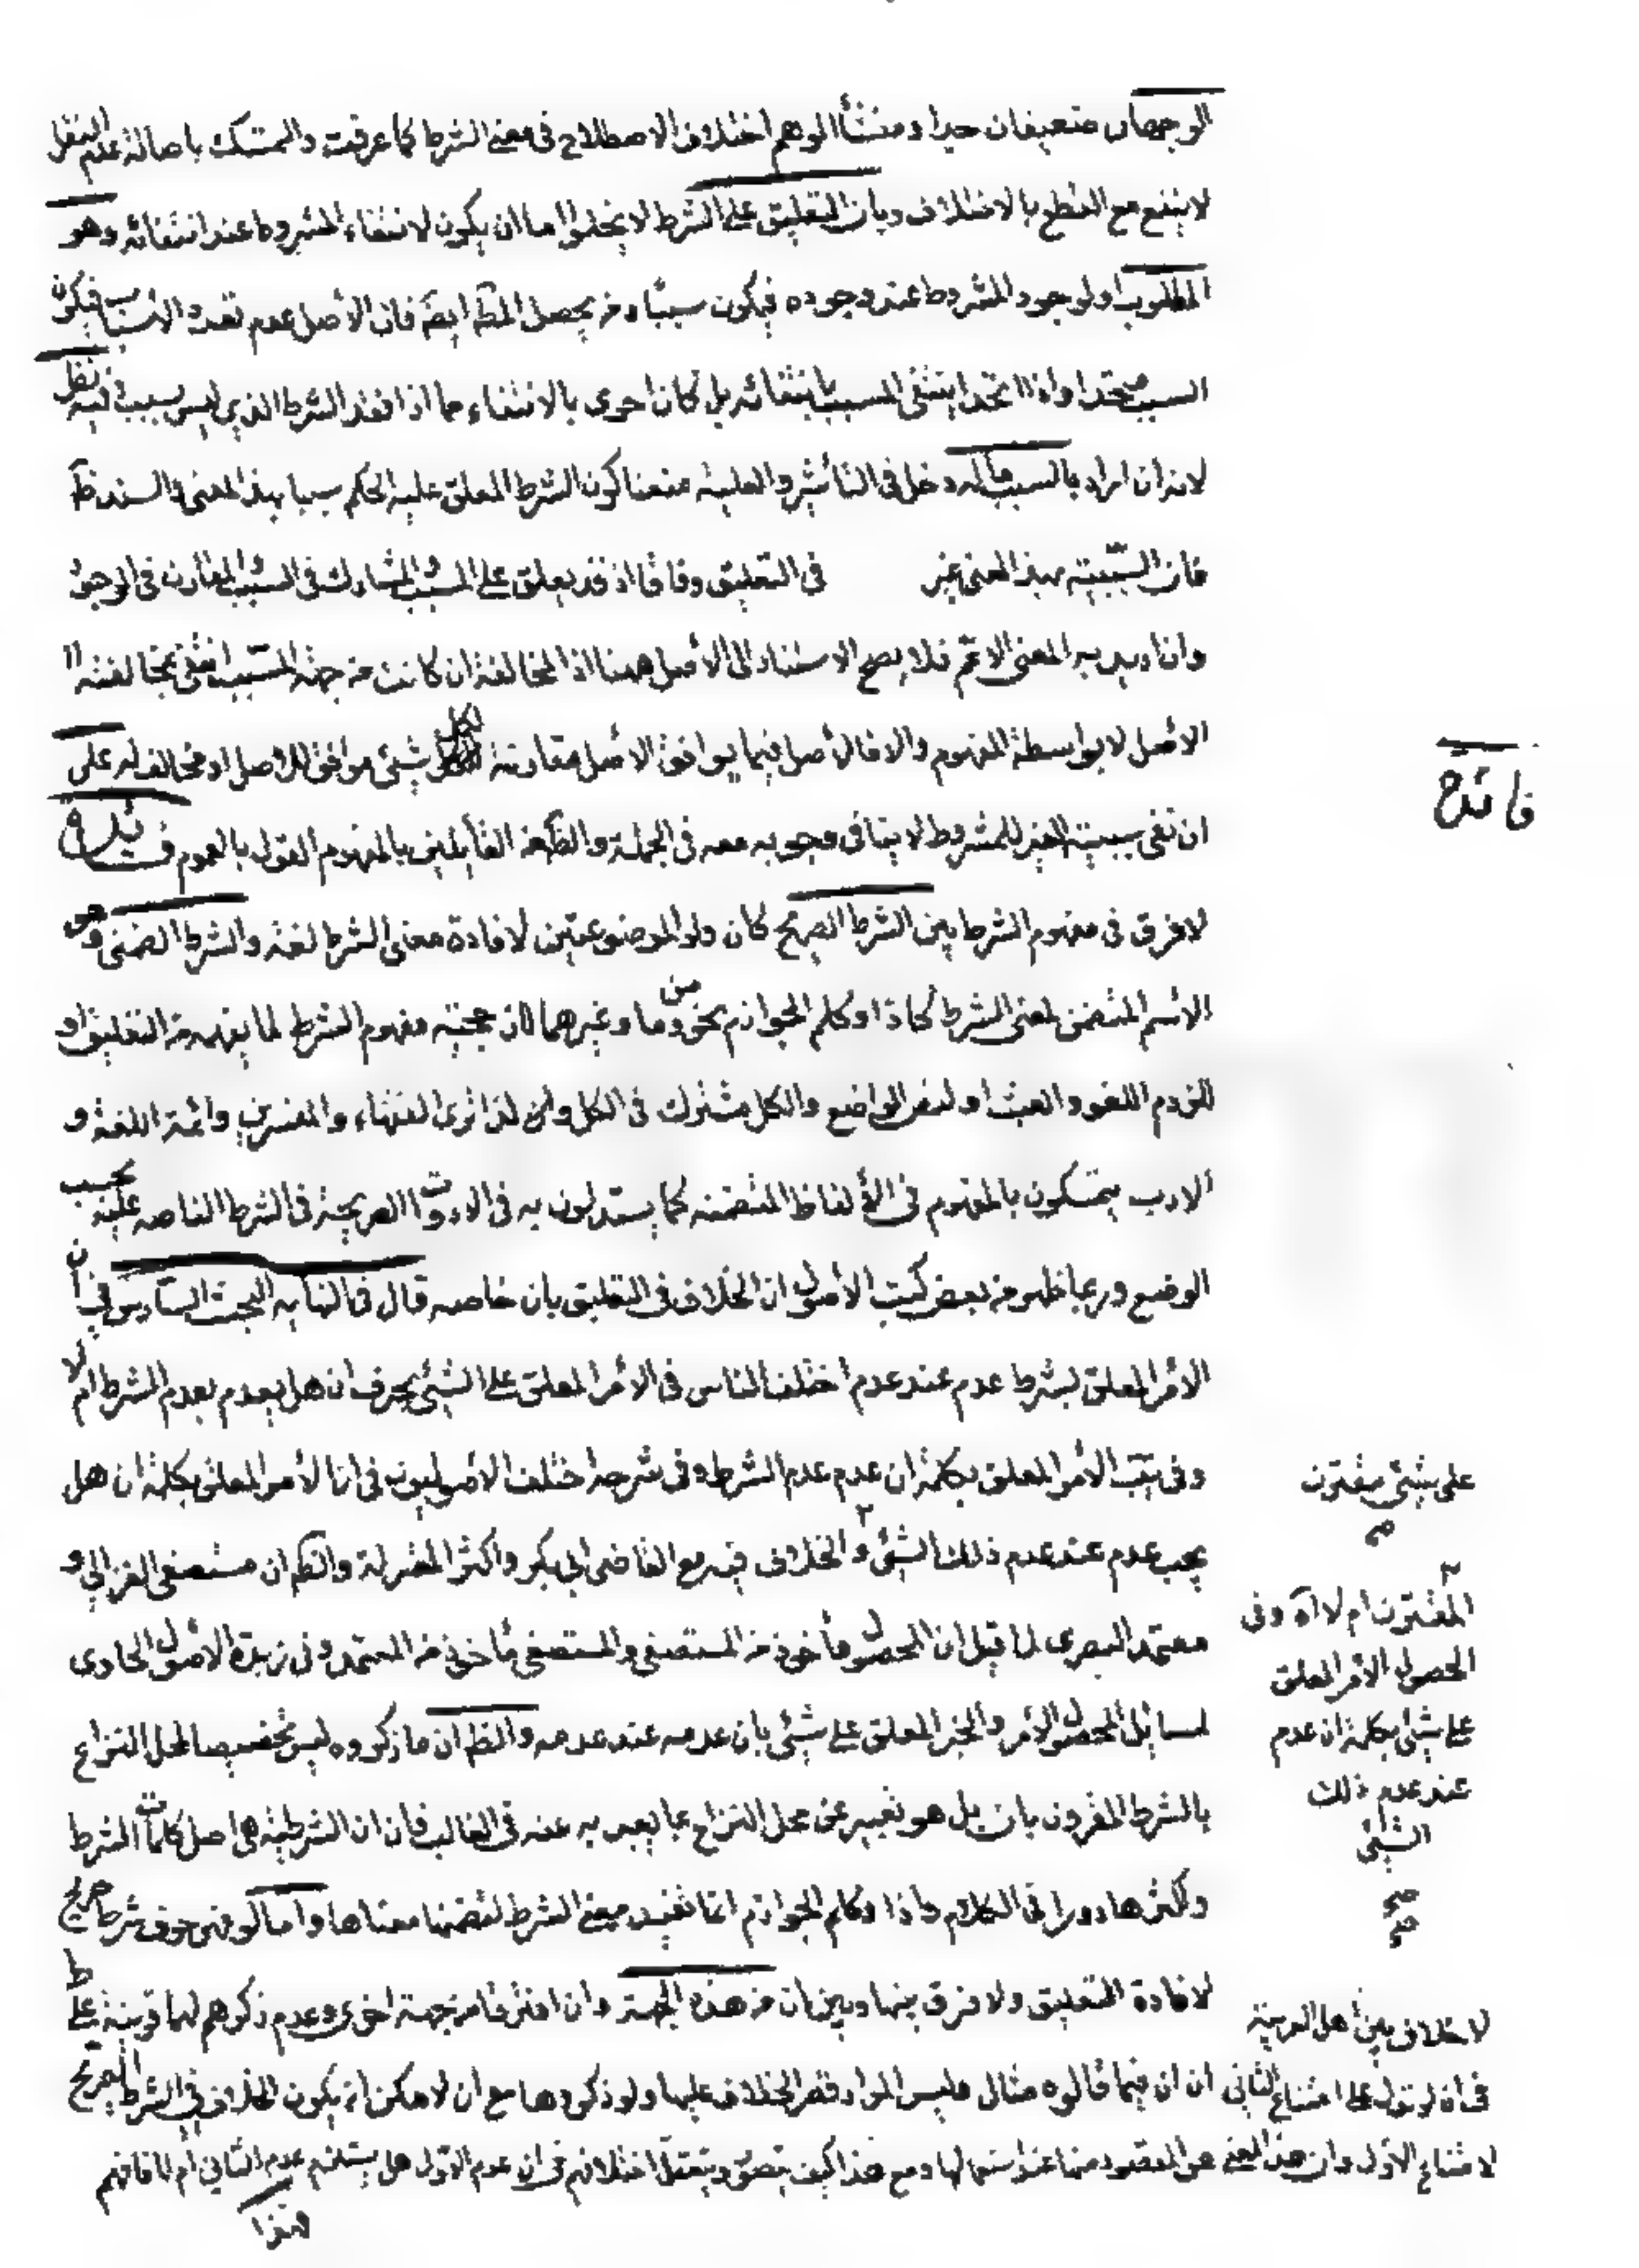 الوجهان ضعيفان جدا ومنشأ الوهم اختلاف الاصطلاح في معنى الشرط كما عرفت والتمسك باصالة عدم النقل
لا ينفع مع القطع بالاختلاف وبان التعليق على الشرط لا يخلوا اما ان يكون لانتفاء المشروط عند انتفائه وهو
المطلوب او لوجود المشروط عند وجوده فيكون سببا وح يحصل المط ايضا فان الأصل عدم تعدد الأسباب فيكون
السبب متحدا واذا اتحد انتفى المسبب بانتفائه بل كان احرى بالانتفاء مما اذا فقد الشرط الذي ليس بسبب فيه نظر
لانه ان اراد بالسبب ما له دخل في التأثير والعلية منعنا كون الشرط المعلق عليه الحكم سببا بهذا المعنى والسند ظ
فان السببية بهذا المعنى غير في التعليق وفاقا اذ قد يعلق على المسبب المشارك في السبب المقارن في الوجود
وان اريد به المعنى الاعم فلا يصح الاستناد الى الأصل ههنا اذ المخالفة ان كانت من جهة السبب انتفى بمخالفته
الأصل لا بواسطة المفهوم والا فالأصل فيما يوافق الأصل مقارنة لكل شيئ موافق للأصل او مخالف له على
ان نفى سببية الغير للمشروط لا ينافى وجوبه معه في الجملة والظ من القائلين بالمفهوم القول بالعموم فائدة
لا فرق في مفهوم الشرط بين الشرط الصريح كان ولو الموضوعتين لافادة معنى الشرط لغة والشرط الضمنى وهو
الاسم المتضمن لمعنى الشرط كاذا وكلم الجوازم نحو من وما وغيرهما لان حجية مفهوم الشرط لما يفهم من التعليق او
للزوم اللغو والعبث او لنص الواضع والكل مشترك في الكل ومن ثم ترى الفقهاء والمفسرين وائمة اللغة و
الادب يتمسكون بالمفهوم في الألفاظ المتضمنه كما يستدلون به في الادوات الصريحة في الشرط الناصه عليه بحسب
الوضع وربما ظهر من بعض كتب الأصول ان الخلاف في التعليق بان خاصه قال في النهايه البحث السادس في ان
الأمر المعلق بشرط عدم عند عدم اختلف الناس في الأمر المعلق على الشيئ بحرف ان هل يعدم بعدم الشرط ام لا
وفي يب الأمر المعلق بكلمة ان عدم عدم الشرط وفي شرحه اختلف الأصوليون في ان الأمر المعلق بكلمة ان هل
يجب عدم عند عدم ذلك الشيئ و الخلاف فيه مع القاضى ابي بكر واكثر المعتزلة والظ ان مستصفى الغزالي و
معتمد البصرى لما قيل ان المحصول مأخوذ من المستصفى والمستصفى مأخوذ من المعتمد وفى زبدة الأصول الحاوى
لمسائل المحصول الأمر والخبر المعلق على شيئ بان عدمه عند عدمه والظ ان ما ذكروه ليس تخصيصا لمحل النزاع
بالشرط المقرون بان بل هو تعبير عن محل النزاع بما يعبر به عنه في الغالب فان ان الشرطية هي اصل كلمات الشرط
واكثرها دورا في الكلام واذا وكلم الجوازم انما تفيد معنى الشرط لتضمنها معناها واما لو فهى حرف شرط صريح
لافادة التعليق ولا فرق بينها وبين ان من هذه الجهة وان افترقا من جهة اخرى وعدم ذكرهم لها قرينة على
ان ان فيما قالوه مثال وليس المراد قصر الخلاف عليها ولو ذكروها مع ان لا مكن ان يكون الخلاف في الشرط الصريح
فائدة
على شيئ مقترن
صح
المقترن ام لا اه وفى
المحصول الأمر المعلق
على شيئ بكلمة ان عدم
عند عدم ذلك
الشيئ
صح
لا خلاف بين أهل العربية
في ان لو تدل على امتناع الثانى
لامتناع الأول وان هذا المعنى هو المقصود منها عند استعمالها ومع هذا كيف يتصور ويتعقل اختلافهم في ان عدم الاول هل يستلزم عدم الثاني ام لا فافهم
هذا